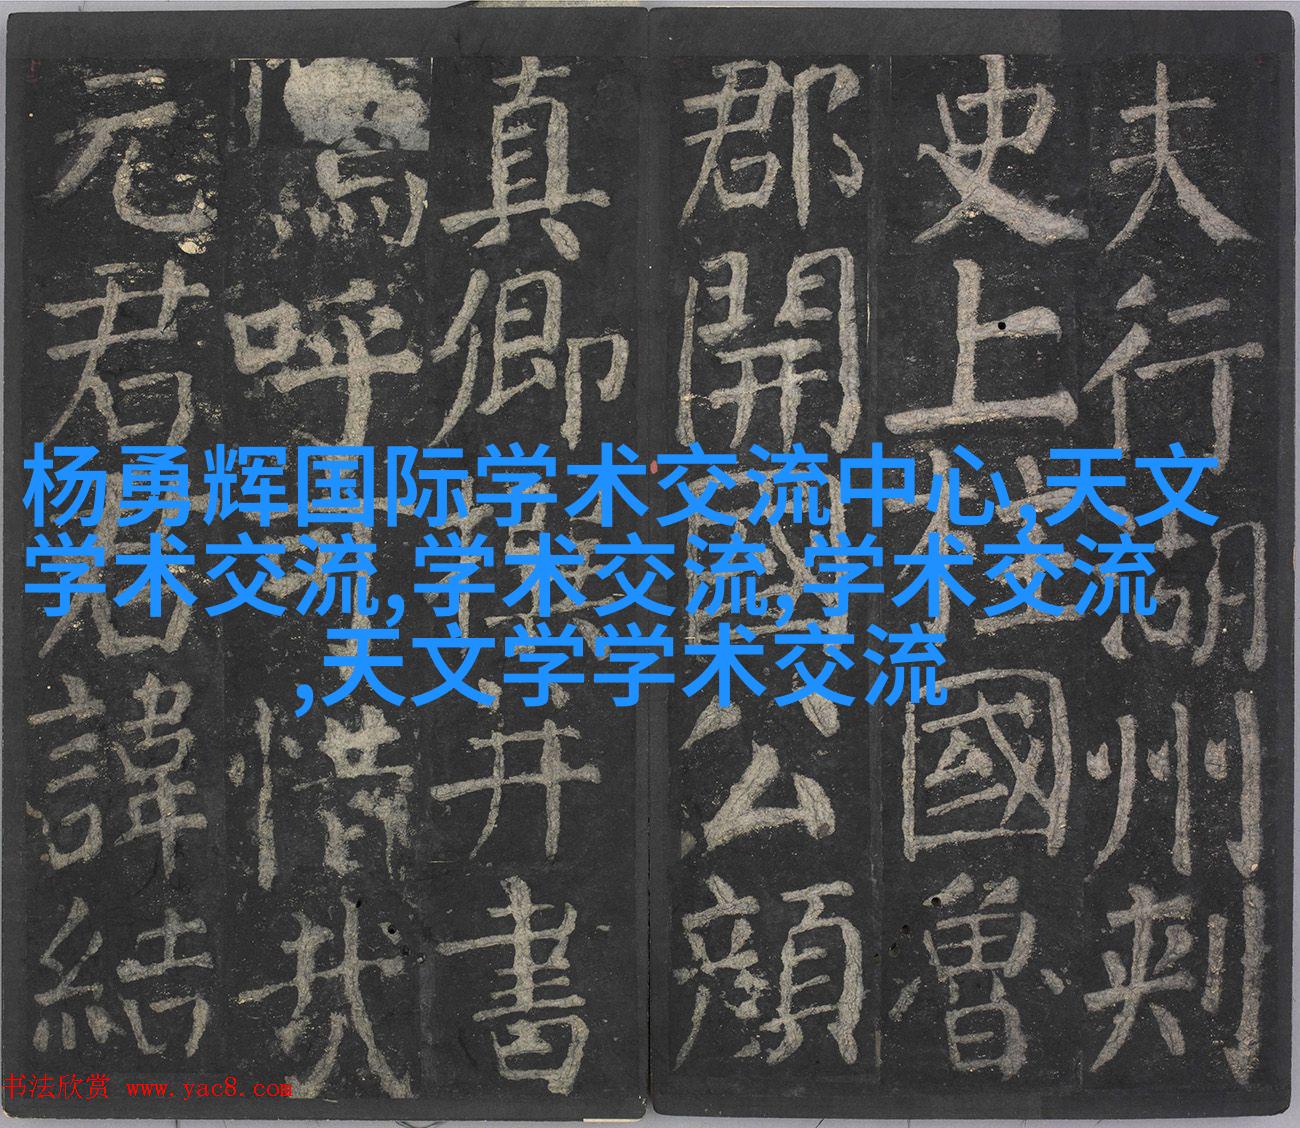 夫行湖州刺
史上柱國魯
郡開國公顏
真卿撰并書
嗚呼可惜哉
元君君諱結
杨勇辉国际学术交流中心,天文
学术交流,学术交流,学术交流
,天文学学术交流
书法欣赏 www.yac8.com